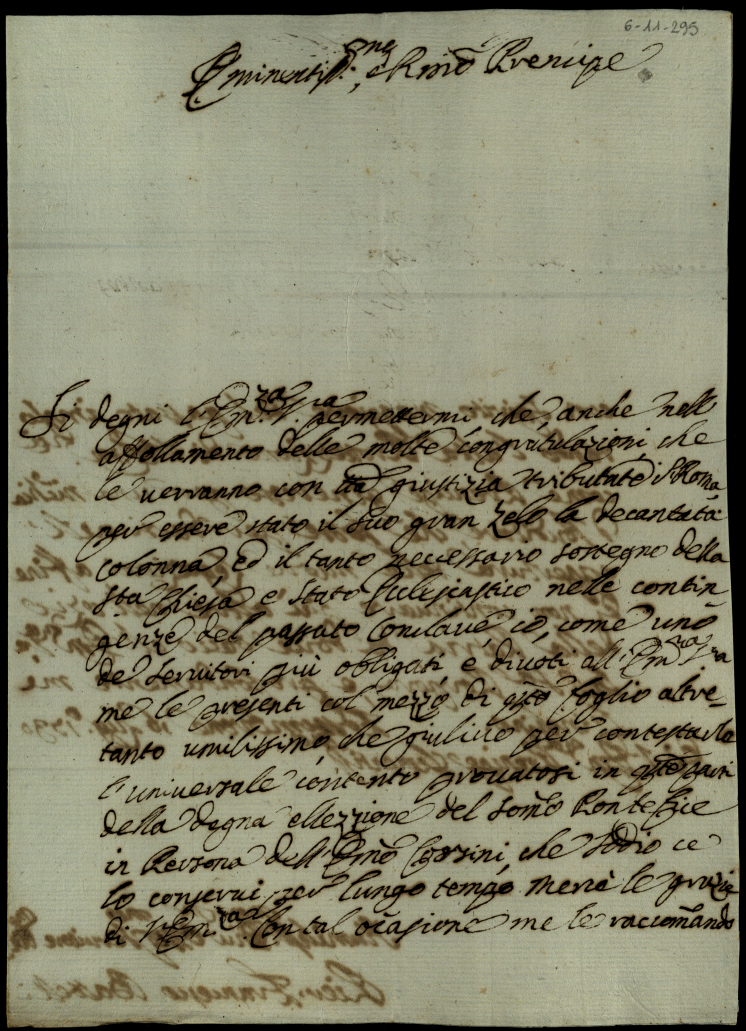 6-11-295
Eminentiss.mo e R.mo Prencipe
Si degni l'Em.za V.ra permettermi che, anche nell'
affollamento delle molte congratulazioni che
le verranno con giustizia tributate di Roma
per essere stato il suo gran zelo la decantata
colonna, ed il tanto necessario sostegno della
sta Chiesa e Stato Ecclesiastico nelle contin
genze del passato Conclave, io, come uno
de servitori più obligati, e divoti all'Em.za V.ra
me le presenti col mezzo di q.sto foglio altre-
tanto umilissimo, che giulivo per contestarle
l'universale contento provatosi in q.ste parti
della degna ellezzione del Som̃o Pontefice
in Persona dell'Em̃o Corsini, che Iddio ce
lo conservi per lungo tempo, mercè le grazie
di V. Em.za Con tal ocasione me le raccom̃ando